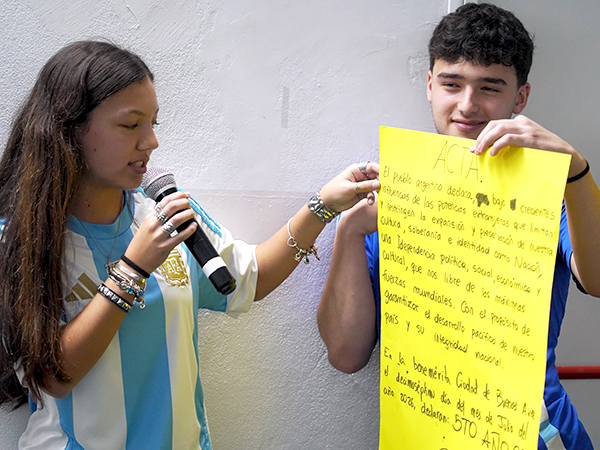 ACTA.
El pueblo argentino declara, bajo crecientes
influencias de las potencias extranjeras que limitan
y restringen la expansión y preservación de nuestra
cultura, soberanía e identidad como Nación,
una Independencia política, social, económica y
cultural, que nos libre de las máximas
fuerzas mundiales. Con el propósito de
garantizar el desarrollo pacífico de nuestro
país y su integridad nacional
En la benemérita Ciudad de Buenos Aires
el decimoséptimo día del mes de Julio del
año 2025, declaran: 5TO AÑO